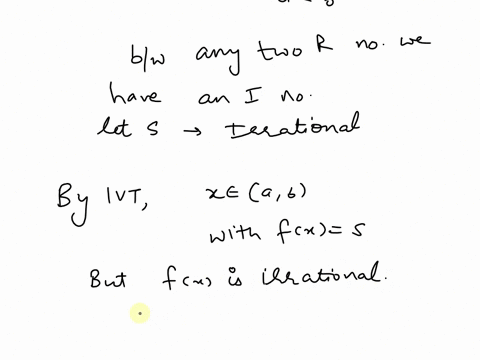 b/w any two R no. we
have an I no.
let s → Irrational
By IVT, x ∈ (a, b)
with f(x) = s
But f(x) is irrational.